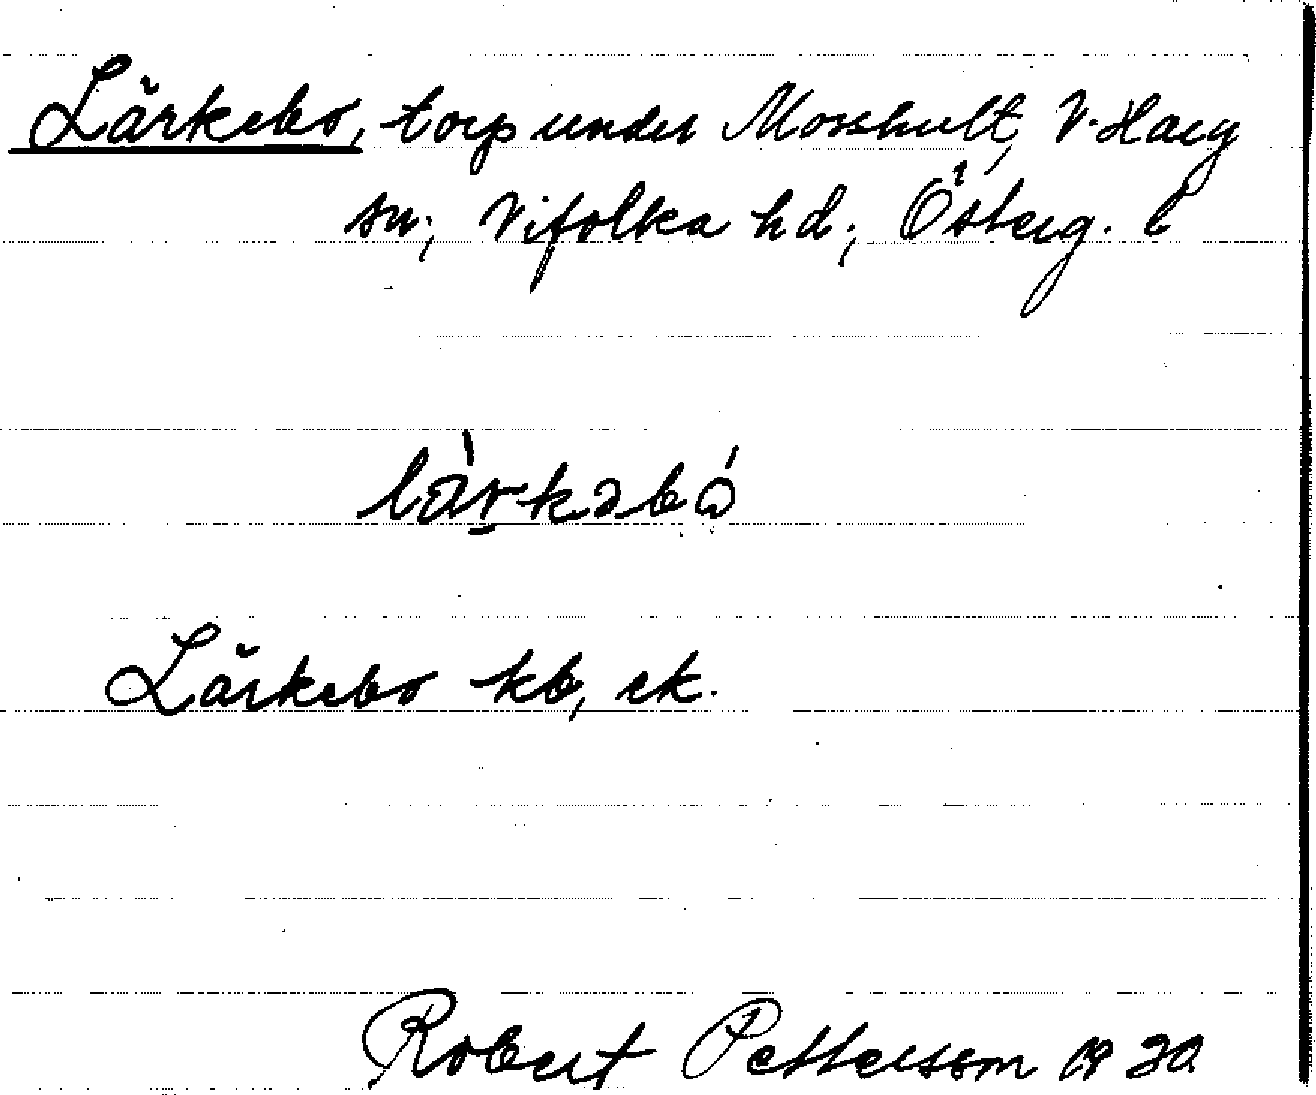 Lärkebo, torp under Mosshult, V. Harg
sn; Vifolka hd; Österg. l
làrkəbó
Lärkebo kb, ek.
Robert Pettersson 1930